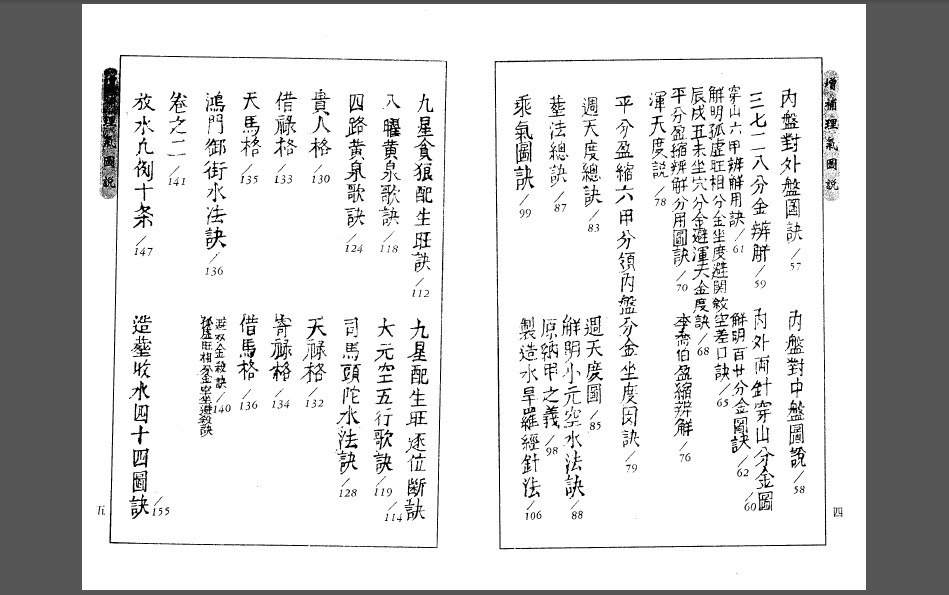 增補理氣圖說
內盤對外盤圖訣/57
內盤對中盤圖說/58
三七二八分金辨解/59
內外兩針穿山分金圖/60
穿山六甲辨解用訣/61
解明百廿分金圖訣/62
解明孤虛旺相分金坐度避關煞空差口訣/65
辰戌丑未坐穴分金避渾天金度訣/68
平分盈縮辨解分用圖訣/70
李喬伯盈縮辨解/76
渾天度說/78
平分盈縮六甲分領內盤分金坐度因訣/79
週天度總訣/83
週天度圖/85
塟法總訣/87
解明小元空水法訣/88
原納甲之義/98
乘氣圖訣/99
製造水旱羅經針法/106
四
九星貪狼配生旺訣/112
九星配生旺逐位斷訣/114
八曜黃泉歌訣/118
大元空五行歌訣/119
四路黃泉歌訣/124
司馬頭陀水法訣/128
貴人格/130
天祿格/132
借祿格/133
寄祿格/134
天馬格/135
借馬格/136
鴻門御街水法訣/136
避煞金殺訣/140
孤虛旺相分金坐避殺訣
卷之二/141
放水九例十条/147
造塟收水四十四圖訣/155
理氣圖說
五